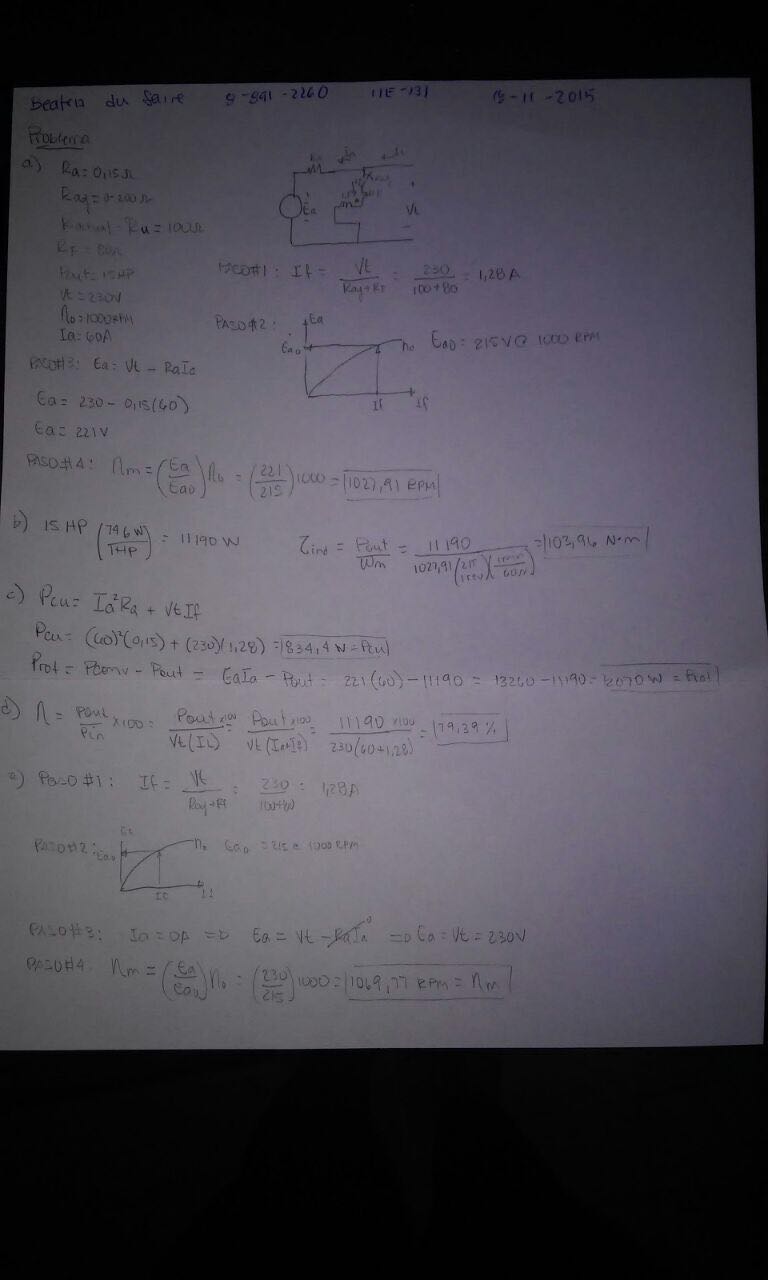 Beatriz du Saire 8-891-2260 11E-131 13-11-2015
Problema
a) Ra = 0,15 Ω
Raj = 0-200 Ω
Ru = 100 Ω
RF = 80 Ω
Pout = 15 HP
Vt = 230 V
no = 1000 RPM
Ia = 60 A
Ra
Ea
Vt
PASO#1: If = Vt/(Raj+RF) = 230/(100+80) = 1,28 A
PASO#2: Ea
Eao no Eao = 215 V @ 1000 RPM
If If
PASO#3: Ea = Vt - RaIa
Ea = 230 - 0,15(60)
Ea = 221 V
PASO#4: nm = (Ea/Eao) no = (221/215) 1000 = 1027,91 RPM
b) 15 HP (746 W/1HP) = 11190 W τind = Pout/Wm = 11190/(1027,91(2π/1rev)(1min/60s)) = 103,96 N·m
c) Pcu = Ia²Ra + VtIf
Pcu = (60)²(0,15) + (230)(1,28) = 834,4 W = Pcu
Prot = Pconv - Pout = EaIa - Pout = 221(60) - 11190 = 13260 - 11190 = 2070 W = Prot
d) η = Pout/Pin x100 = Pout x100/Vt(IL) = Pout x100/Vt(Ia+If) = 11190 x100/230(60+1,28) = 79,39 %
e) Paso #1: If = Vt/(Raj+Rf) = 230/(100+80) = 1,28 A
PASO#2: Ea
Eao no Eao = 215 @ 1000 RPM
If If
PASO#3: Ia = 0A => Ea = Vt - RaIa 0 => Ea = Vt = 230V
PASO#4: nm = (Ea/Eao) no = (230/215) 1000 = 1069,77 RPM = nm